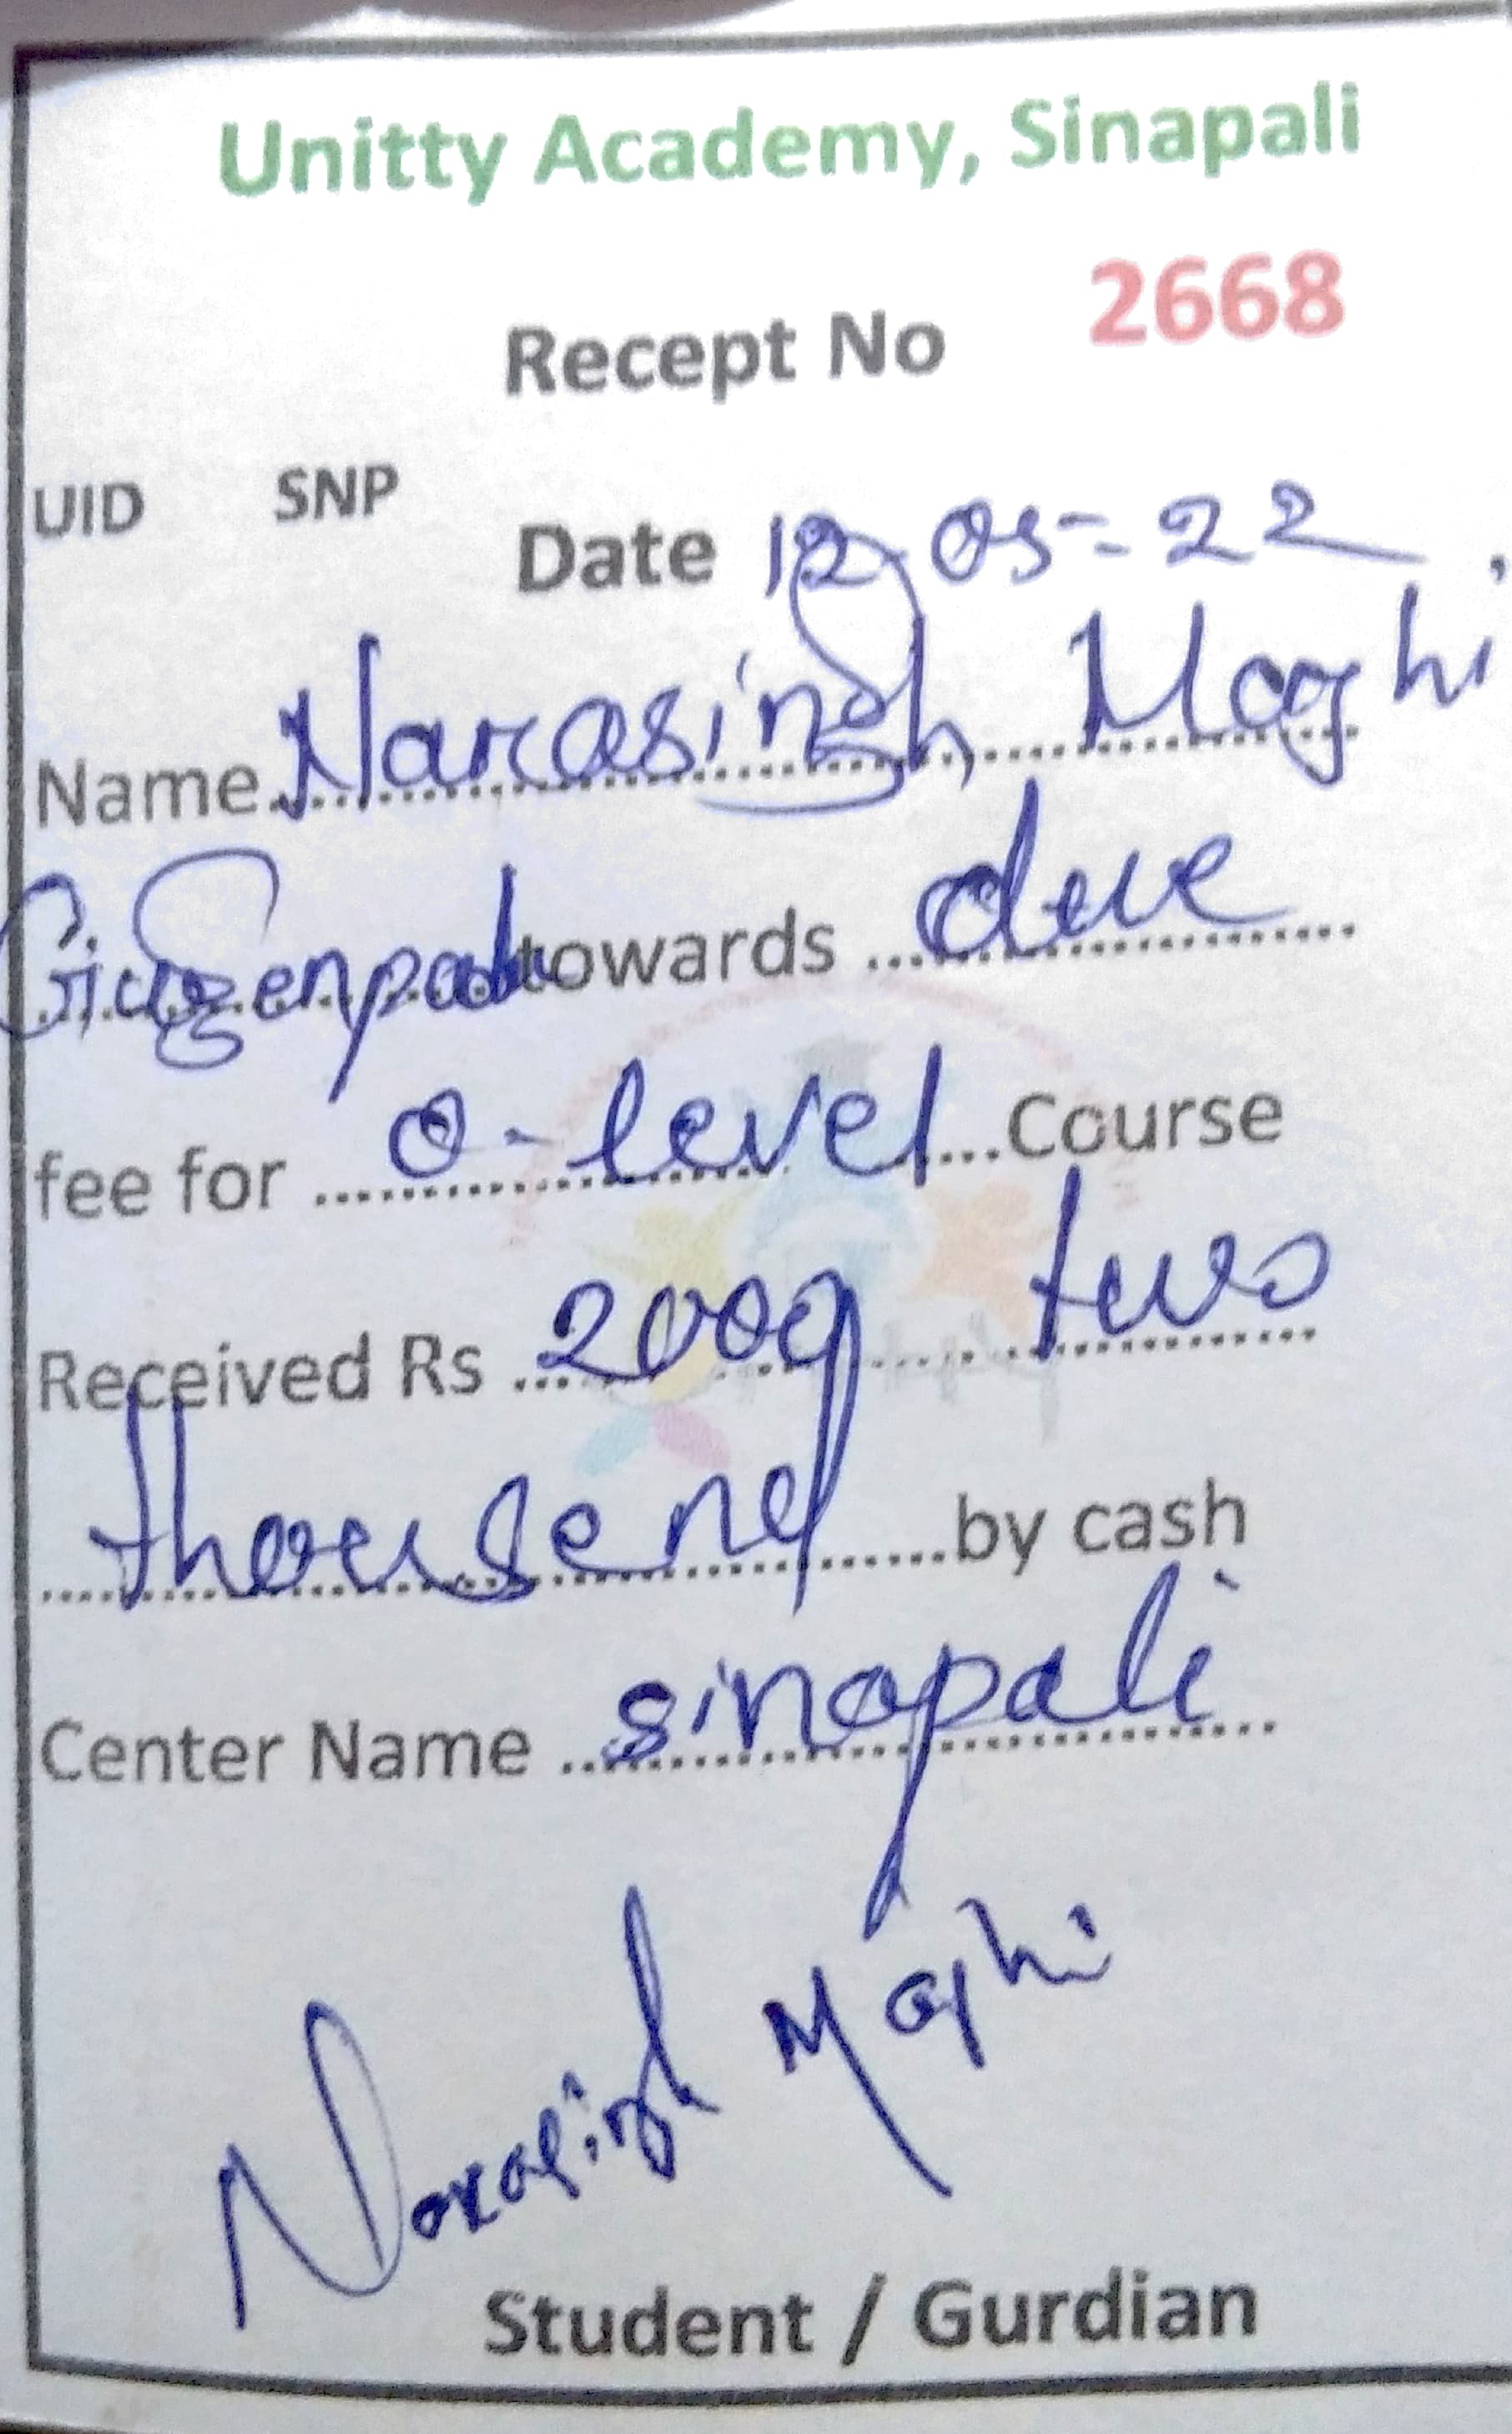 Unitty Academy, Sinapali
Recept No 2668
UID SNP
Date 12-05-22
Name Narasingh Majhi
towards due
fee for O-level Course
Received Rs 2000 two
thousend by cash
Center Name sinapali
Narasingh Majhi
Student / Gurdian